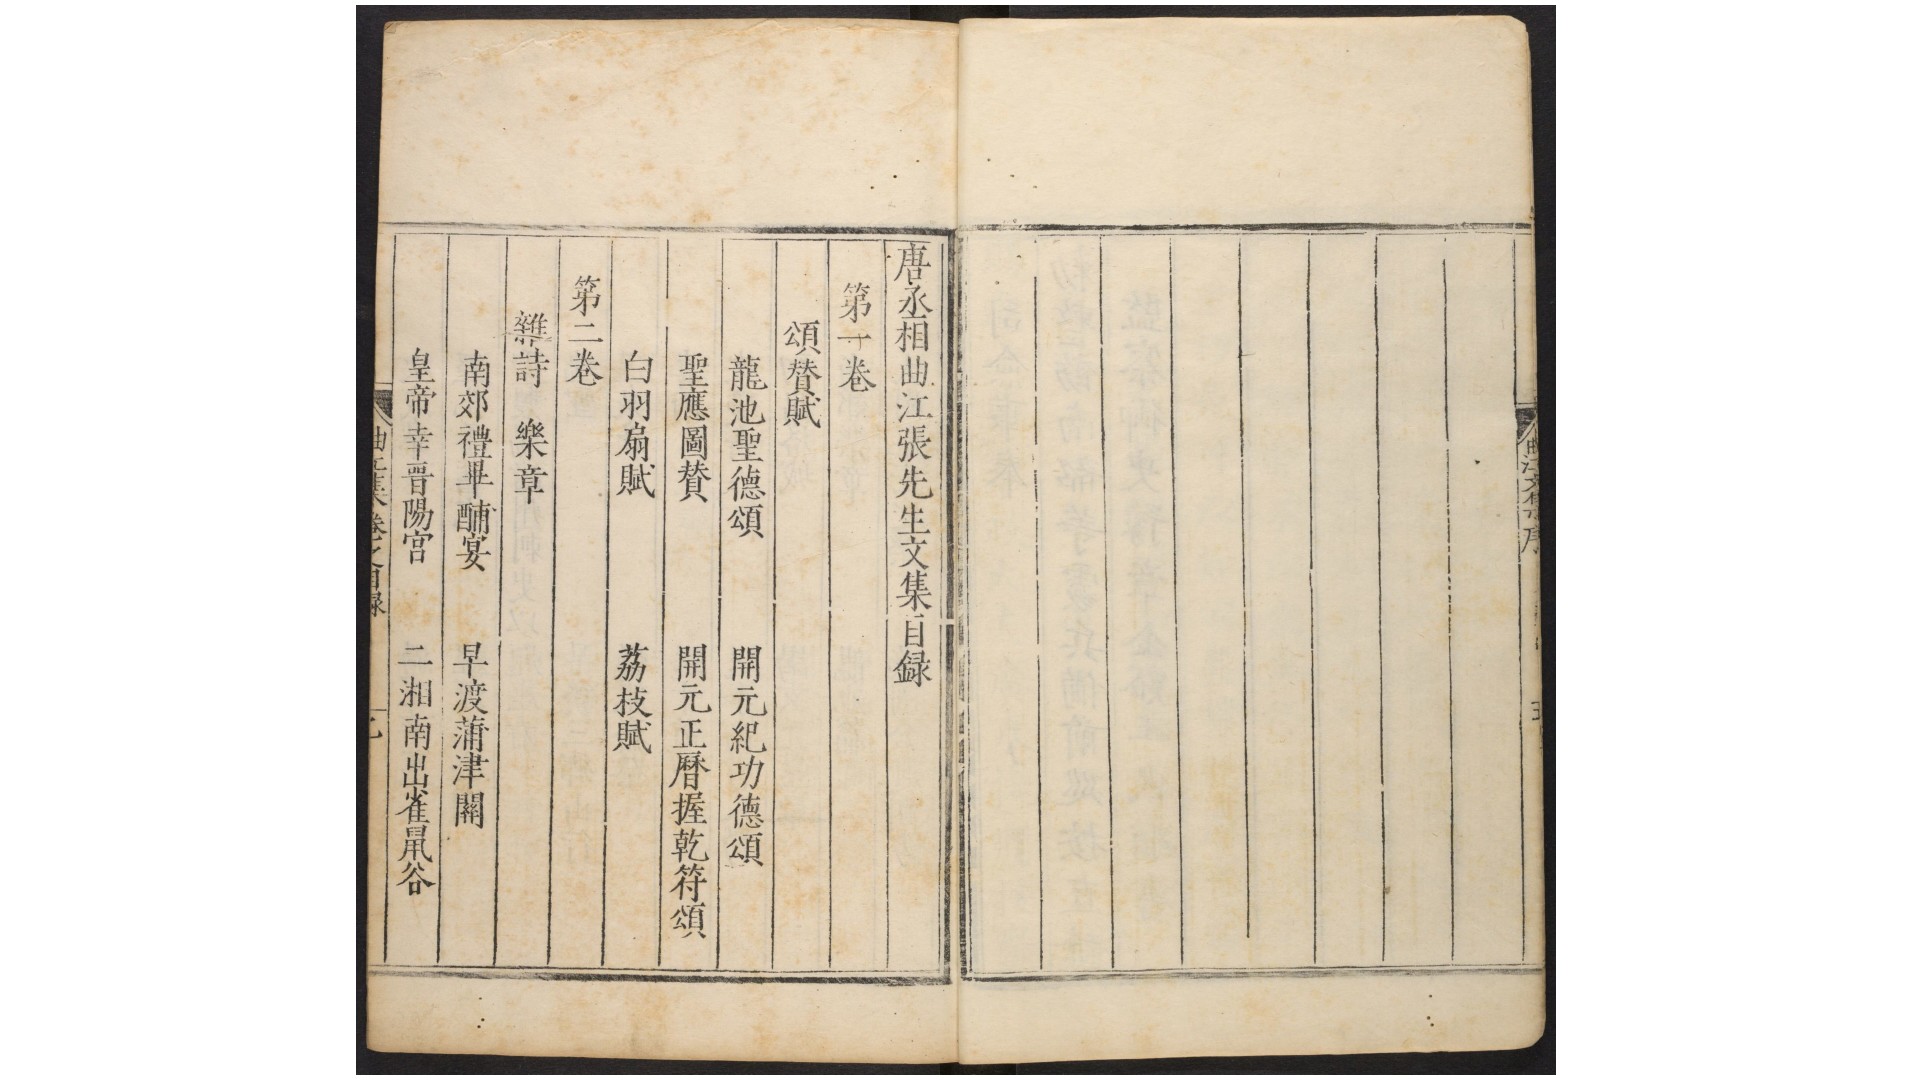 唐丞相曲江張先生文集目録
第一卷
頌賛賦
龍池聖德頌 開元紀功德頌
聖應圖賛 開元正曆握乾符頌
白羽扇賦 荔枝賦
第二卷
雜詩 樂章
南郊禮畢酺宴 早渡蒲津關
皇帝幸晋陽宮 二湘南出雀鼠谷
曲江集卷之目録